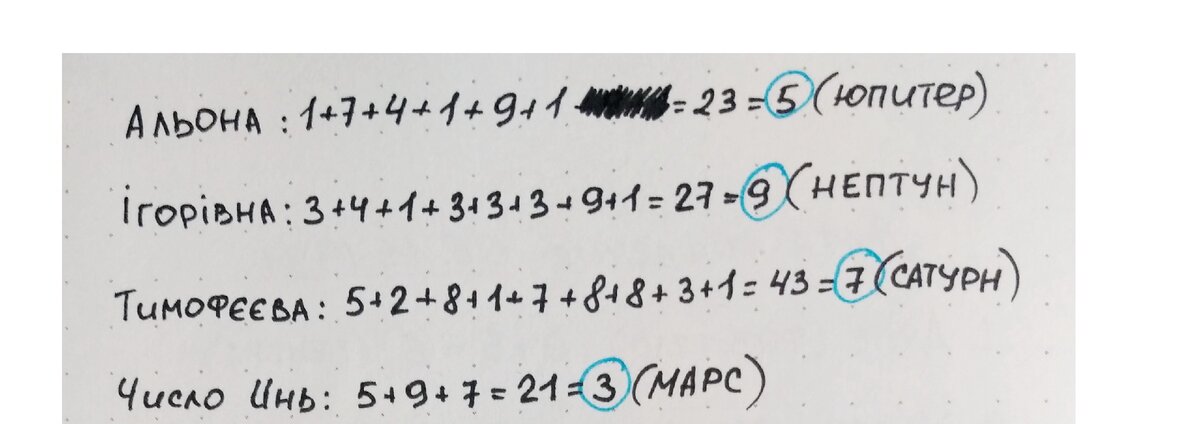 Альона: 1+7+4+1+9+1 = 23 = 5 (Юпитер)
Ігорівна: 3+4+1+3+3+3+9+1 = 27 = 9 (Нептун)
Тимофеєва: 5+2+8+1+7+8+8+3+1 = 43 = 7 (Сатурн)
Число Инь: 5+9+7 = 21 = 3 (Марс)